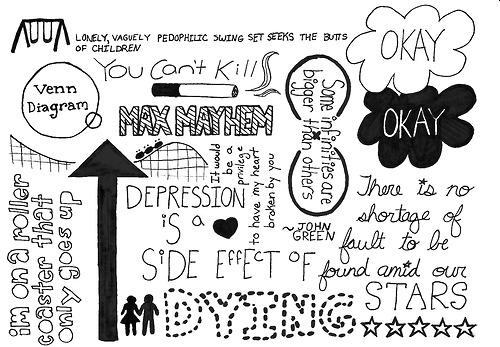 LONELY, VAGUELY PEDOPHILIC SWING SET SEEKS THE BUTTS
OF CHILDREN
OKAY
You Can't Kill
Venn
Diagram
MAX MAYHEM
Some infinities are
bigger than others
OKAY
It would
be a
privilege
to have my heart
broken by you
im on a roller
coaster that
only goes up
DEPRESSION
iS a
SiDE EffECT OF
DYING
~JOHN
GREEN
There is no
shortage of
fault to be
found amid our
STARS